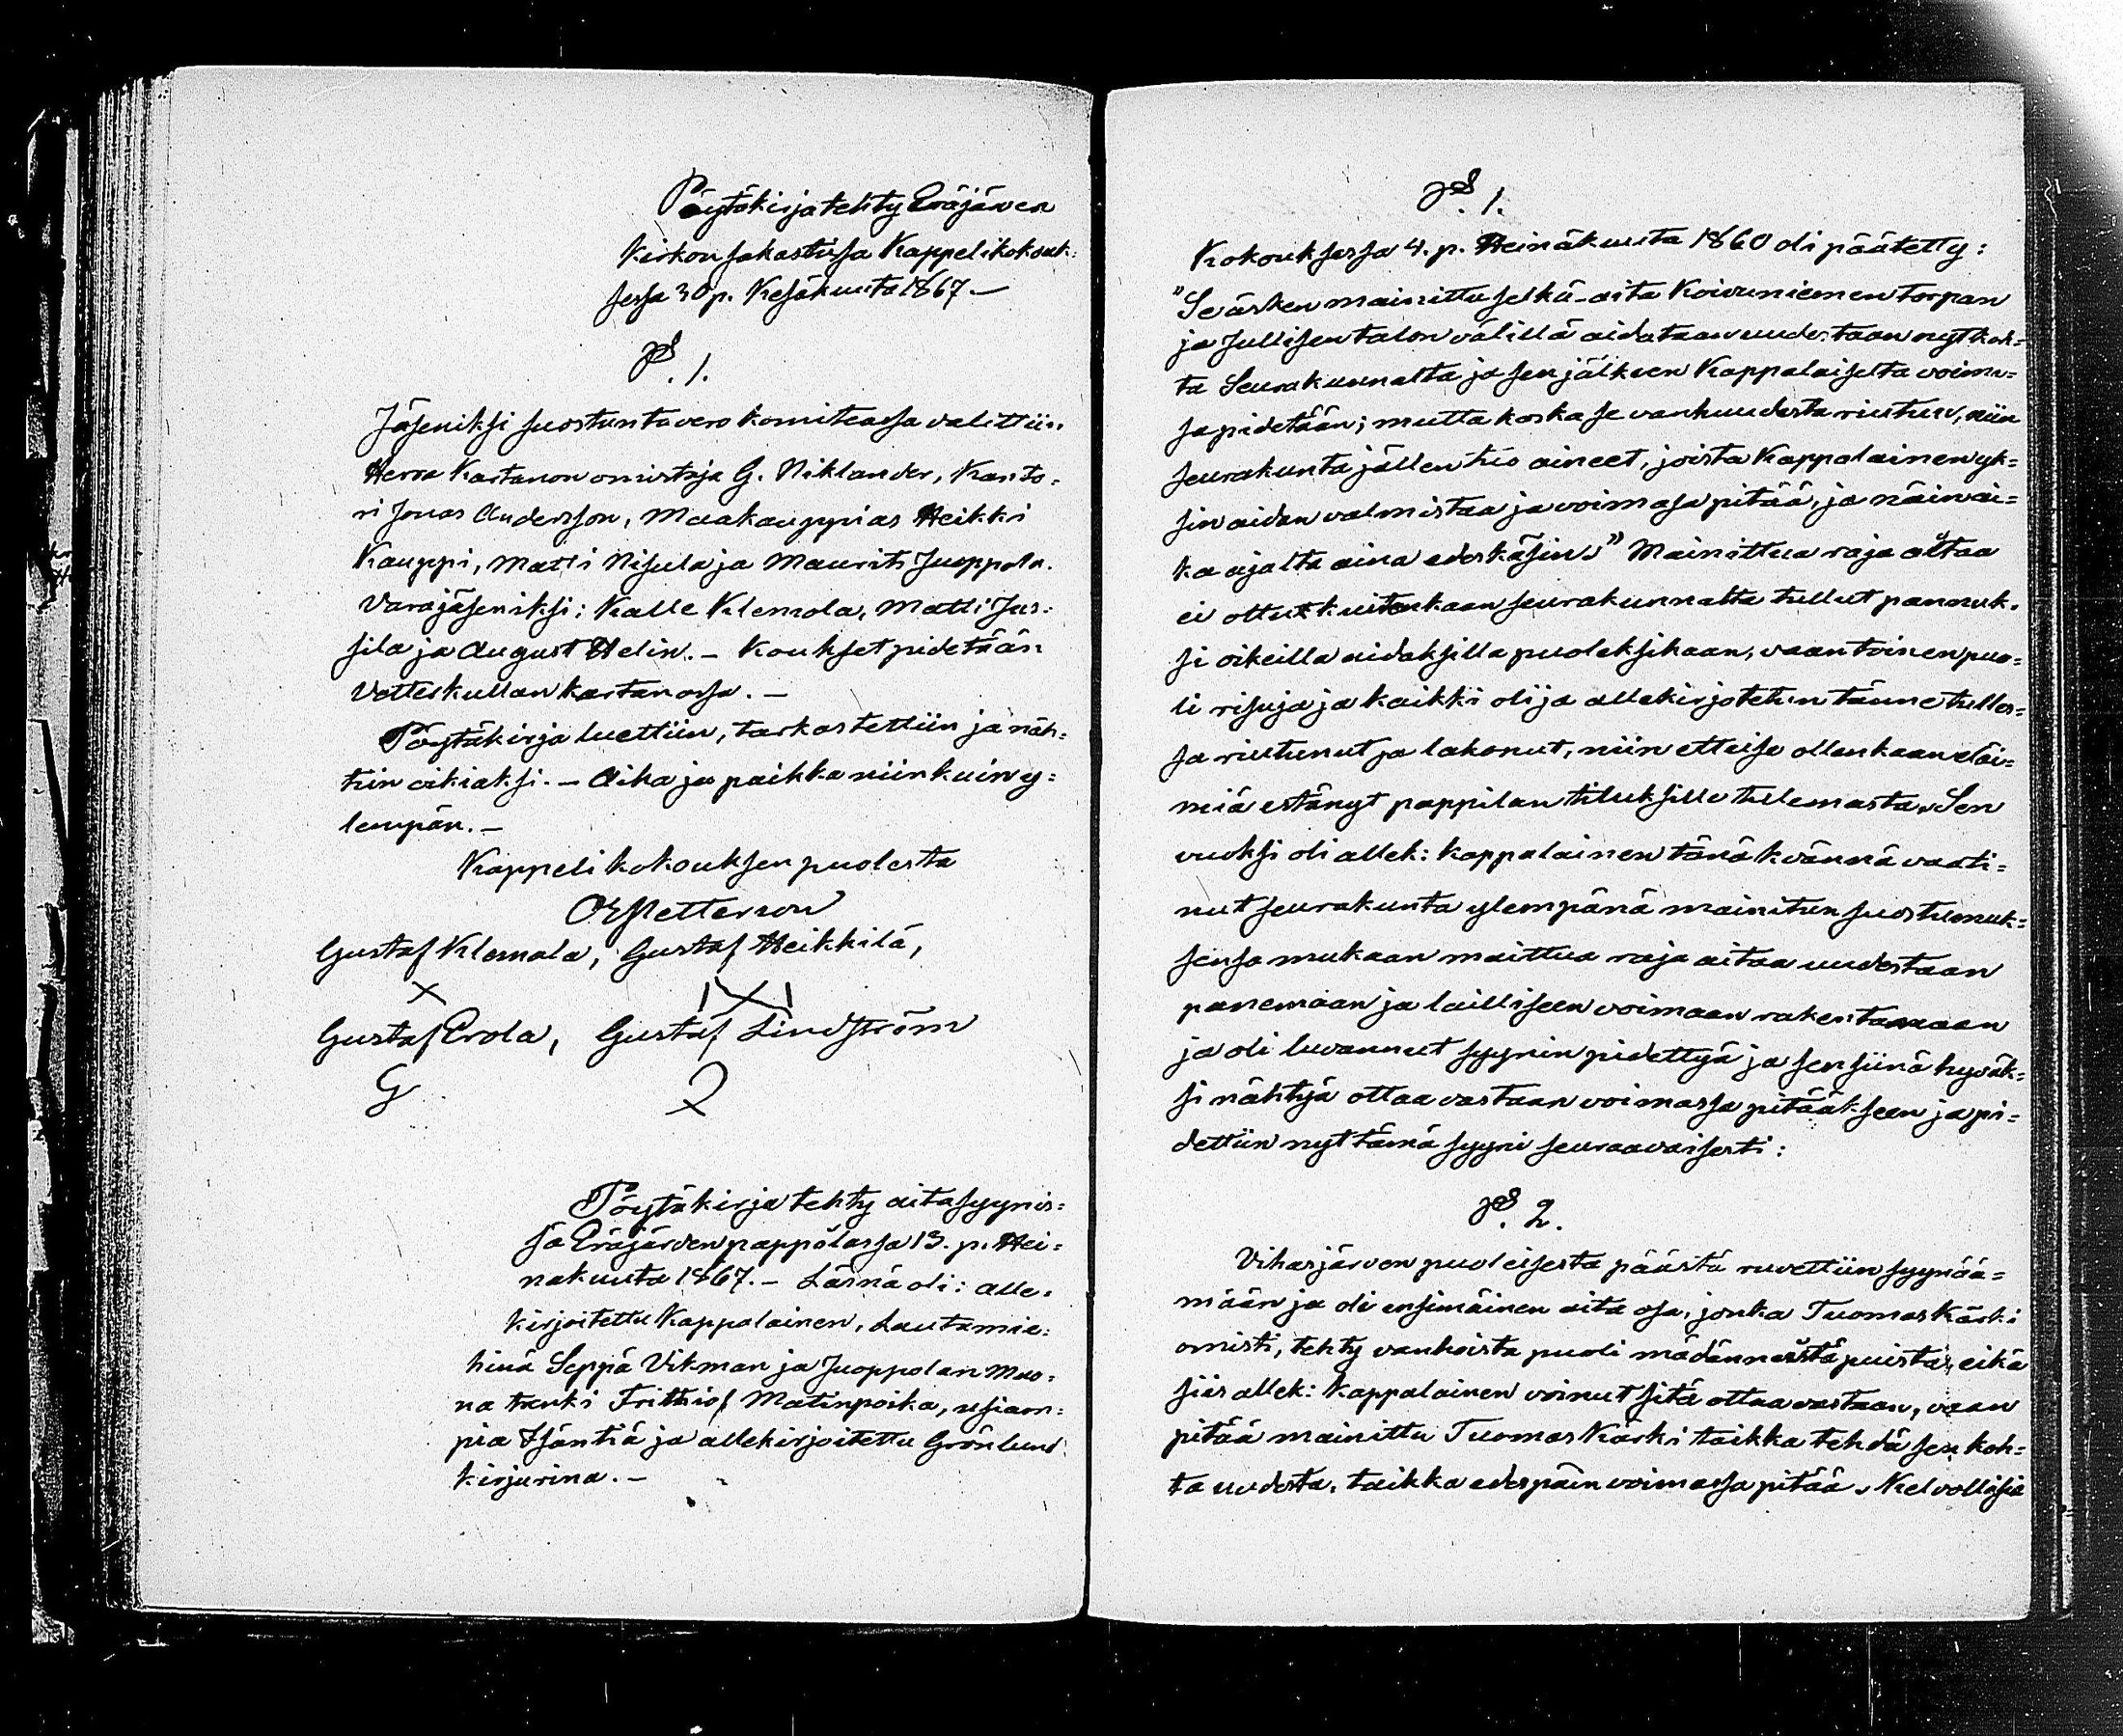 Pöytäkirja tehty Eräjärven
kirkon sakastissa Kappelikokouk=
sessa 30 p. Kesäkuuta 1867. –
§. 1.
Jäseniksi suostuntavero komiteassa valittiin
Herra Kartanon omistaja G. Niklander, Kanto=
ri Jonas Andersson, Maakauppias Heikki
Kauppi, Matti Nisula ja Maurits Juoppola.
Varajäseniksi: Kalle Klemola, Matti Jus=
sila ja August Helin. – Koukset pidetään
Vetteskullan kartanossa. –
Pöytäkirja luettiin, tarkastettiin ja näh=
tiin oikiaksi. – Aika ja paikka niinkuin y=
lempän. –
Kappelikokouksen puolesta
Petterson
Gustaf Klemola, Gustaf Heikkilä,
Gustaf Erola, Gustaf Lindström
G
Pöytäkirja tehty aitasyynis=
sä Eräjärven pappilassa 13. p. Hei=
nakuuta 1867. – Läsnä oli: alle=
kirjoitettu Kappalainen, Lautamie=
hinä Seppä Vikman ja Juoppolan Muo=
na trenki Frithiof Matinpoika, usiam=
pia Isäntiä ja allekirjoitettu Grönlund
kirjurina. –
§. 1.
Kokouksessa 4. p. Heinäkuuta 1860 oli päätetty:
"Se äsken mainittu selkä-aita Koivuniemen torpan
ja Jullisen talon välillä aidataan uudestaan nyt koh=
ta Seurakunnalta ja sen jälkeen Kappalaiselta voima=
sa pidetään; mutta koska se vanhuudesta riutuu, niin
seurakunta jällen tuo aineet, joista Kappalainen yk=
sin aidan valmistaa ja voimasa pitää, ja näin ai=
ka ajalta aina edeskäsin." Mainittua raja aitaa
ei ollut kuitenkaan seurakunnalta tullut pannuk=
si oikeilla aidaksilla puoleksikaan, vaan toinen puo=
li risuja ja kaikki oli ja allekirjotetun tänne tulles=
sa riutunut ja lakonut, niin ettei se ollenkaan eläi=
miä estänyt pappilan tiluksille tulemasta. Sen
vuoksi oli allek: Kappalainen tänä kevännä vaati=
nut seurakunta ylempänä mainitun suostumuk=
sensa mukaan maittua raja aitaa uudestaan
panemaan ja lailliseen voimaan rakentamaan
ja oli luvannut syynin pidettyä ja sen siinä hyväk=
si nähtyä ottaa vastaan voimassa pitääkseen ja pi=
dettiin nyt tämä syyni seuraavaisesti:
§. 2.
Vihasjärven puoleisesta päästä ruvettiin syynää=
mään ja oli ensimäinen aita osa, jonka Tuomas Kärki
omisti, tehty vanhoista puoli mädänneistä puista, eikä
siis allek: Kappalainen voinut sitä ottaa vastaan, vaan
pitää mainittu Tuomas Kärki taikka tehdä sen koh=
ta uudesta, taikka edespäin voimassa pitää. Kelvollisia